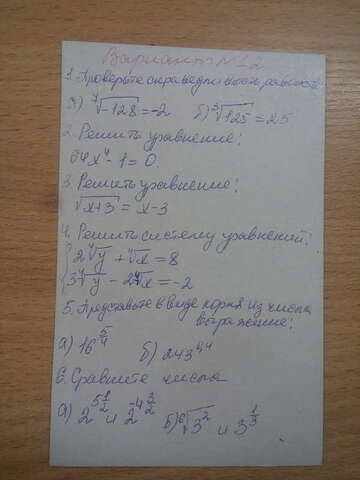 Вариант №12
1. Проверьте справедливость равенств
а) ⁷√-128 = -2 б) ³√125 = 25
2. Решить уравнение:
64x⁴ - 1 = 0
3. Решить уравнение:
√x+3 = x-3
4. Решить систему уравнений:
{ 2⁴√y + ⁴√x = 8
3⁴√y - 2⁴√x = -2
5. Представьте в виде корня из числа
выражение:
а) 16^(5/4) б) 243^0,4
6. Сравните числа
а) 2^(5 1/2) и 2^(-4 3/2) б) ⁶√3² и 3^(1/3)